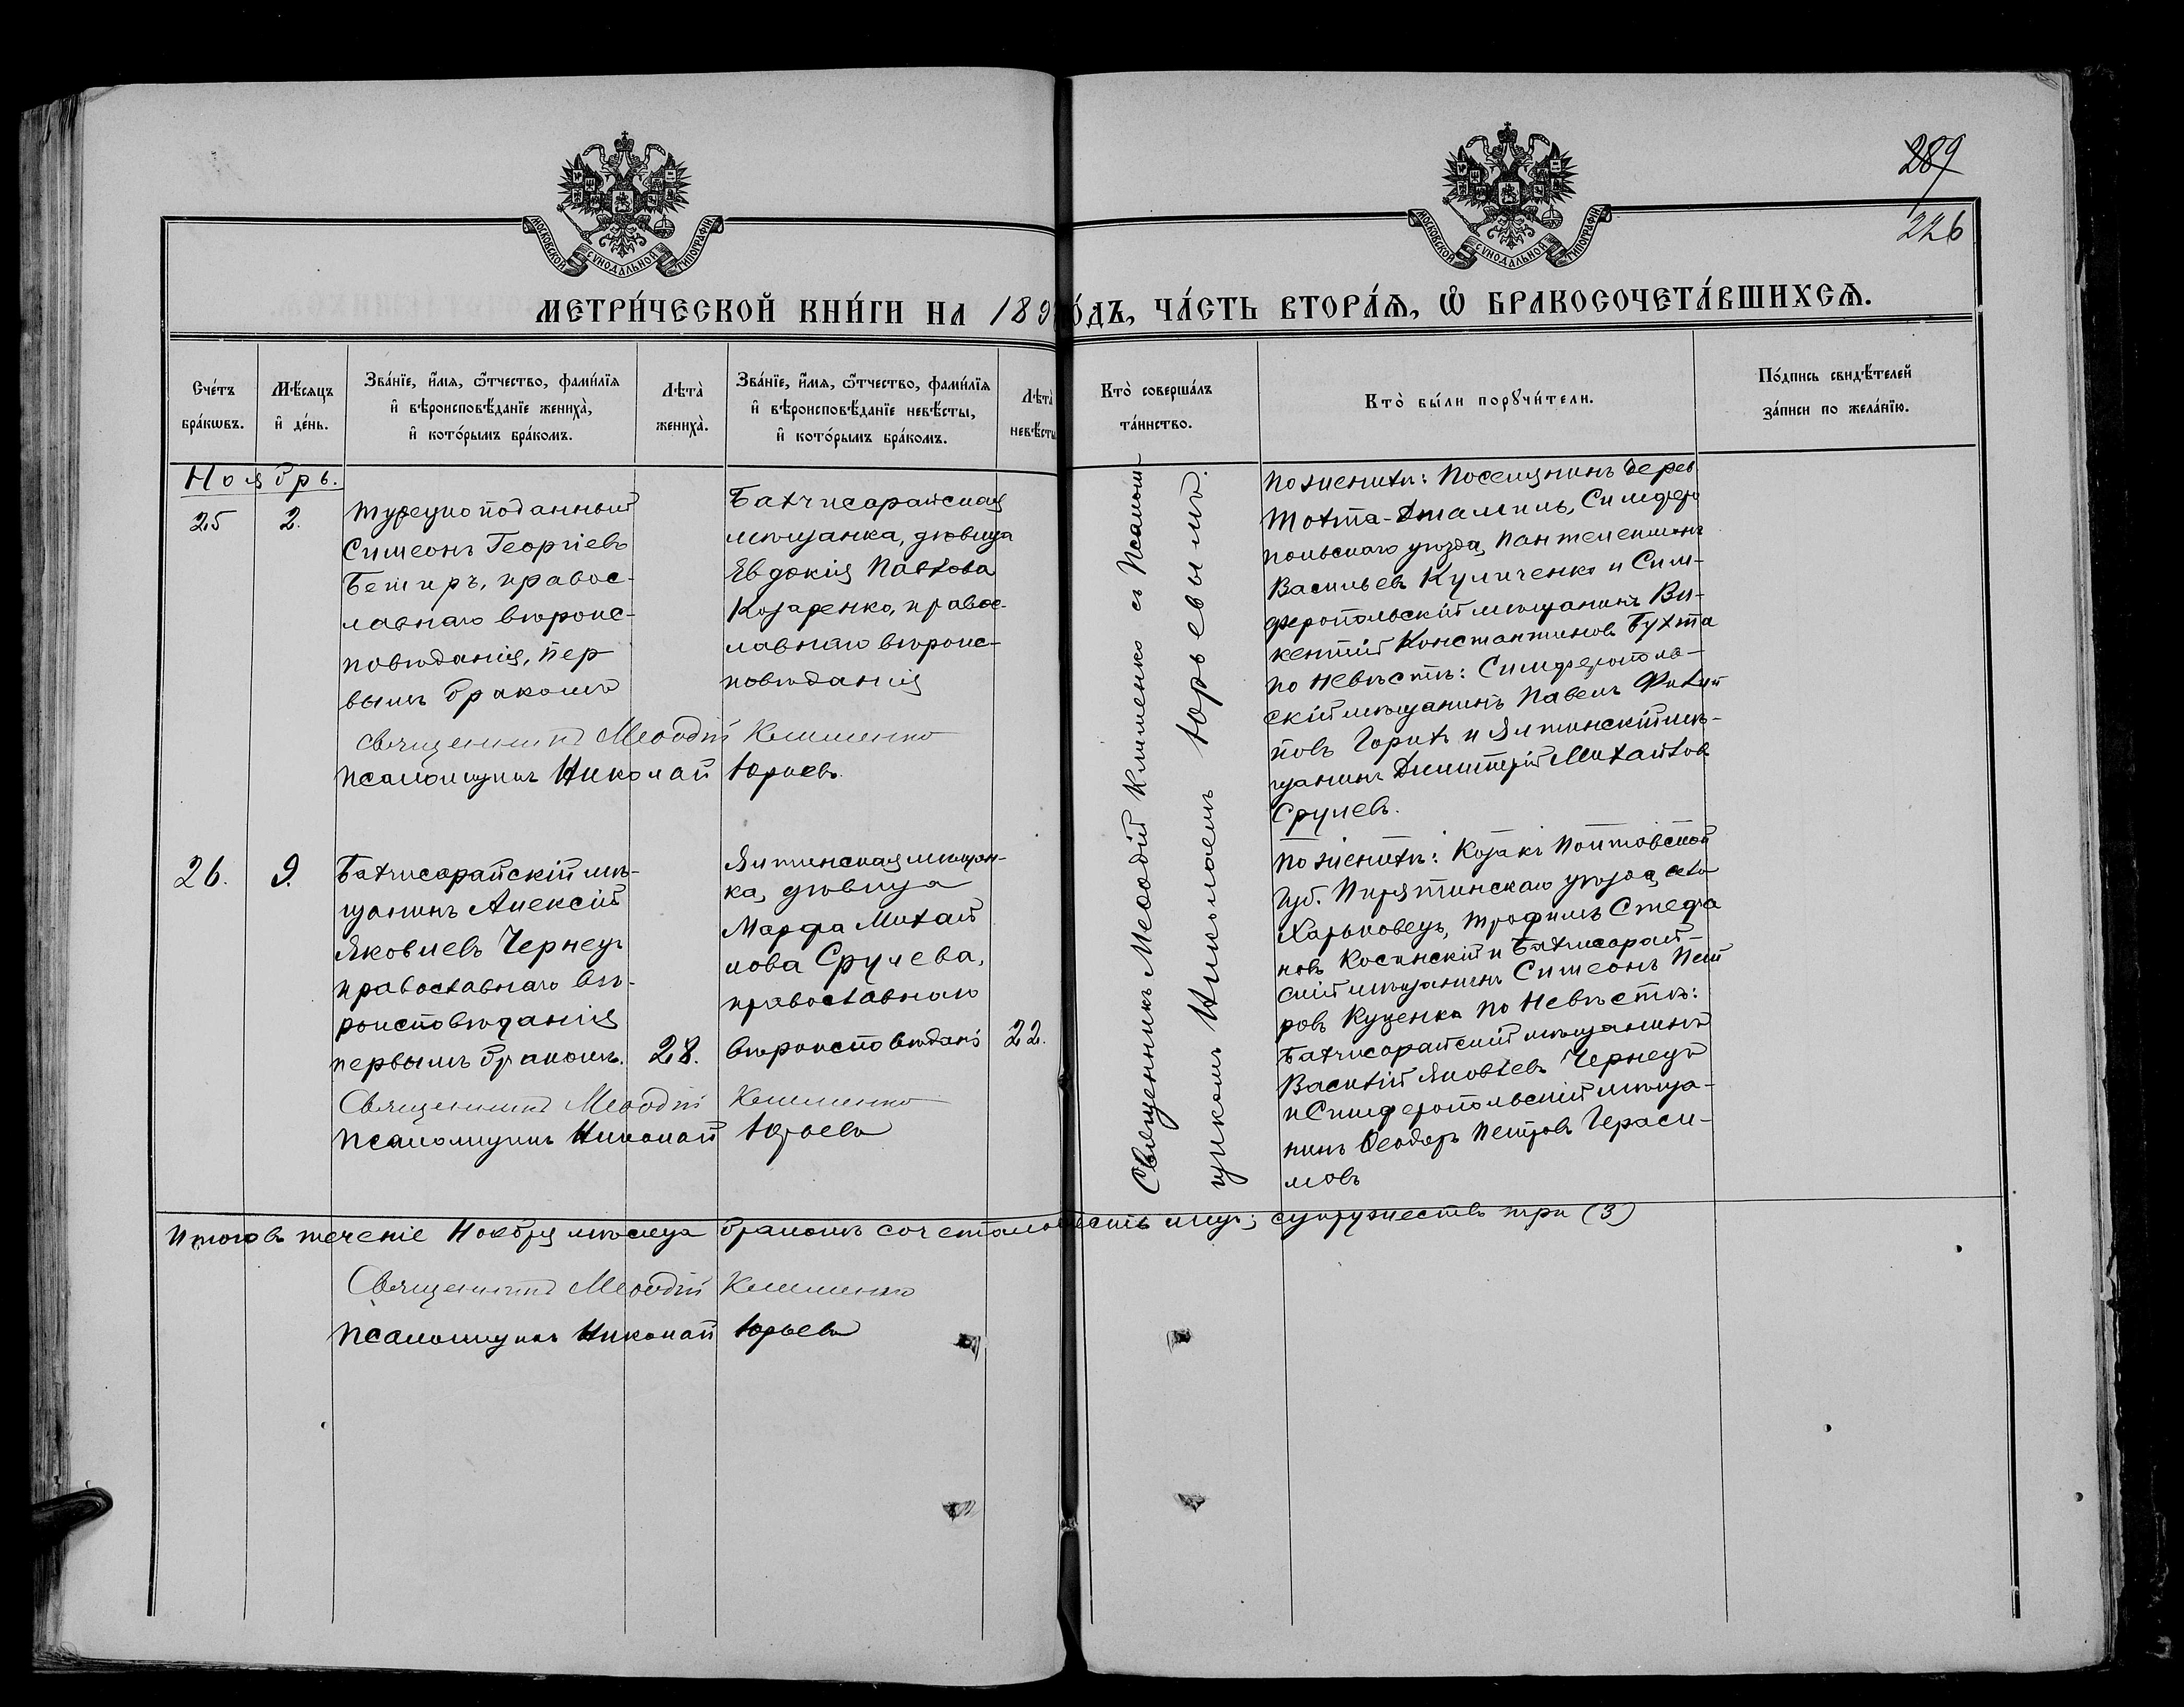 289
226
МОСКОВСКОЙ СѴНОДАЛЬНОЙ ТИПОГРАФІИ
МОСКОВСКОЙ СѴНОДАЛЬНОЙ ТИПОГРАФІИ
МЕТРИ́ЧЕСКОЙ КНИ́ГИ НА 189 О́ДЪ, ЧА́СТЬ ВТОРА́Ѧ, Ѽ БРАКОСОЧЕТА́ВШИХСѦ.
Сче́тъ
бра́кѡвъ.
Мѣ́сѧцъ
и҆ де́нь.
Зва́нїе, и҆́мѧ, ѻ҆́тчество, фами́лїѧ
и҆ вѣроисповѣ́данїе жениха̀,
и҆ кото́рымъ бра́комъ.
Лѣта̀
жениха̀.
Зва́нїе, и҆́мѧ, ѻ҆́тчество, фами́лїѧ
и҆ вѣроисповѣ́данїе невѣ́сты,
и҆ кото́рымъ бра́комъ.
Лѣта̀
невѣ́сты
Кто̀ соверша́лъ
та́инство.
Кто̀ бы́ли порꙋчи́тели.
По́дпись свидѣ́телей
за́писи по жела́нїю.
Ноябрь.
25
2.
Турецкоподанный
Симеонъ Георгіевъ
православ-
лавнаго вѣроис-
повѣданія, пер
вымъ бракомъ
Батчисарайская
мѣщанка, дѣвица
Евдокія Павлова
Козаренко, правос-
лавнаго вѣроис-
повѣданія
Священникъ Меѳодій Клименко
Псаломщикъ Николай Юрьевъ.
Священникъ Меѳодій Клименко съ Псалом-
щикомъ Николаемъ Юрьевымъ.
По женихѣ: Поселянинъ дерев
Симферо
польскаго уѣзда, Пантелеимонъ
Васильевъ Куличенко и Сим-
феропольскій мѣщанинъ Ви-
кентій Константиновъ Бухта
по невѣстѣ: Симферополь-
скій мѣщанинъ Павелъ Филип
повъ и Ялтинскій мѣ-
щанинъ Димитрій Михайлов
Срулевъ.
26.
9.
Батчисарайскій мѣ-
щанинъ Алексій
Яковлевъ Чернецъ
православнаго вѣ-
роисповѣданія
первымъ бракомъ.
28.
Ялтинская мѣщан-
ка, дѣвица
Марфа Михай
лова Срулева,
православнаго
вѣроисповѣдані
22.
Священникъ Меѳодій Клименко
Псаломщикъ Николай Юрьевъ
По женихѣ: Козакъ Полтавской
Губ. Пирятинскаго уѣзда, села
Харьковецъ, Трофимъ Стефа
новъ Косинскій и Батчисарай-
скій мѣщанинъ Симеонъ Пет
ровъ Куценко по невѣстѣ:
Батчисарайскій мѣщанинъ
Василій Яковлевъ Чернецъ
и Симферопольскій мѣща-
нинъ Ѳеодоръ Петровъ Гераси-
мовъ
Итого въ теченіе Ноября мѣсяца бракомъ сочеталось супружествъ три (3)
Священникъ Меѳодій Клименко
Псаломщикъ Николай Юрьевъ